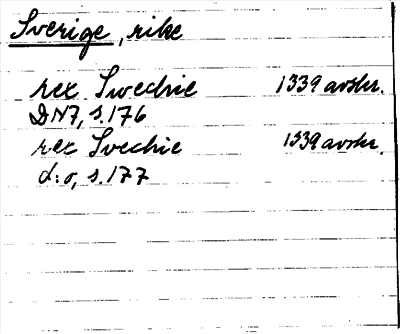 Sverige, rike
rex Swechie 1339 avskr.
DN7, s. 176
rex Svechie 1339 avskr.
d:o, s. 177